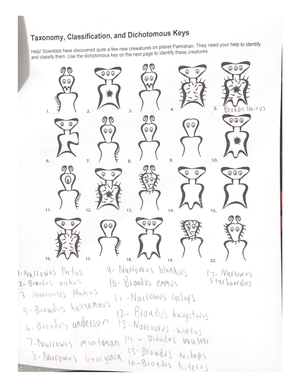 Taxonomy, Classification, and Dichotomous Keys
Help! Scientists have discovered quite a few new creatures on planet Pamishan. They need your help to identify
and classify them. Use the dichotomous key on the next page to identify these creatures.
1. 2. 3. 4. 5. Broadus Hairus
6. 7. 8. 9. 10.
11. 12. 13. 14. 15.
16. 17. 18. 19. 20.
1- Narrowus
2- Broadus
3- Narrowus
4- Broadus
6- Broadus anderson
7. Narrowus montanian
8- Narrowus Georginia
9- Narrowus blankus
10- Broadus emmus
11- Narrowus cyclops
12- Broadus hairystarus
13- Narrowus
14- Broadus walter
15- Broadus cyclops
16- Broadus
17- Narrowus
starboardus